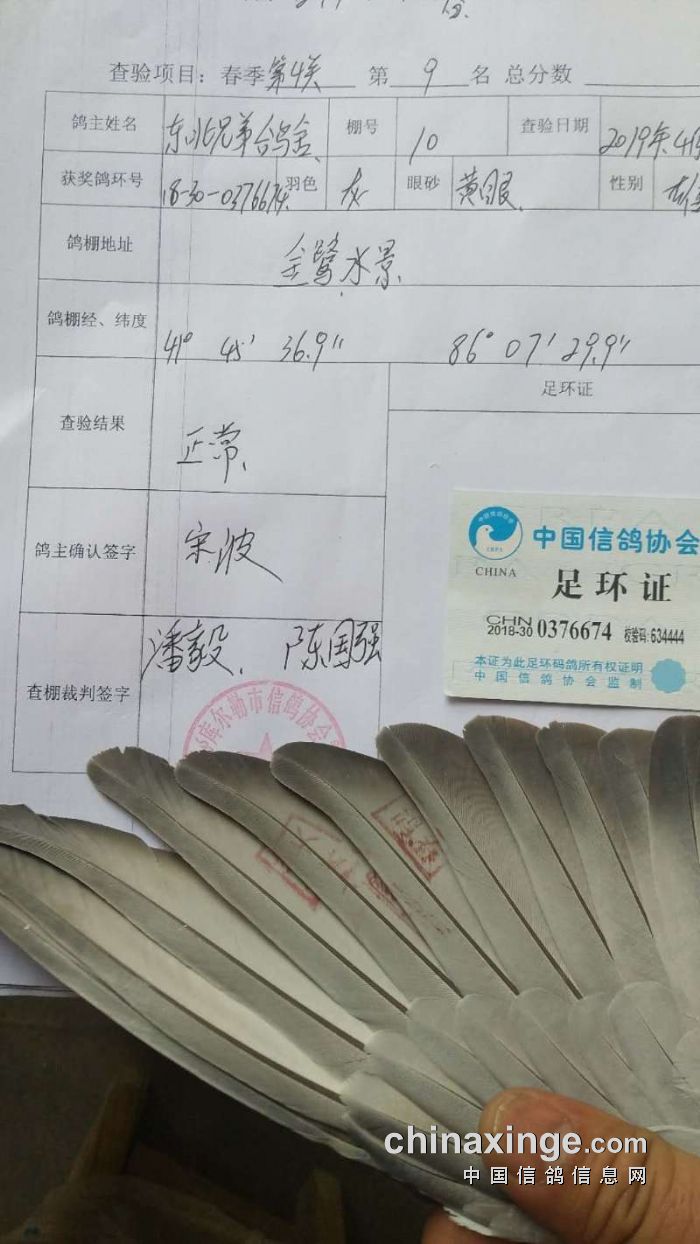 查验项目：春季第4关 第 9 名 总分数
鸽主姓名 东北兄弟鸽舍 棚号 10 查验日期 2019年4月
获奖鸽环号 18-30-0376674 羽色 灰 眼砂 黄眼 性别 雄
鸽棚地址 金鹭水景
鸽棚经、纬度 41° 45′ 36.9″ 86° 07′ 29.9″
足环证
查验结果 正常
鸽主确认签字 宋波
查棚裁判签字 潘毅、陈国强
库尔勒市信鸽协会
中国信鸽协会
CHINA
足环证
CHN
2018-30 0376674 校验码:634444
本证为此足环码鸽所有权证明
中国信鸽协会监制
chinaxinge.com
中国信鸽信息网